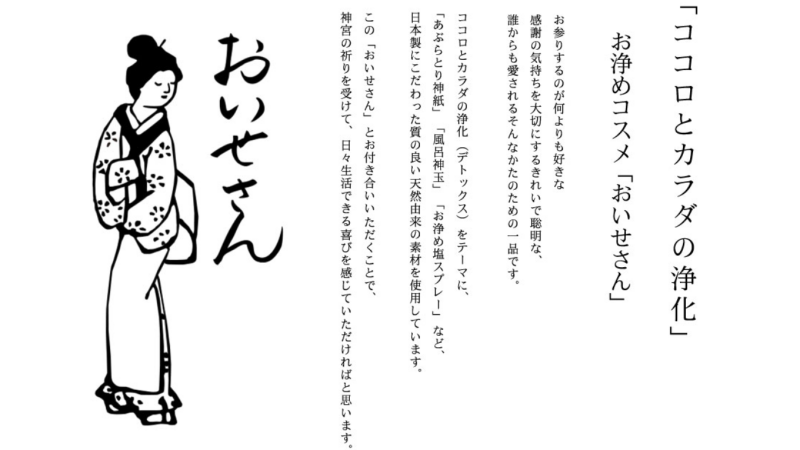 「ココロとカラダの浄化」
お浄めコスメ「おいせさん」
お参りするのが何よりも好きな
感謝の気持ちを大切にするきれいで聡明な、
誰からも愛されるそんなかたのための一品です。
ココロとカラダの浄化（デトックス）をテーマに、
「あぶらとり神紙」「風呂神玉」「お浄め塩スプレー」など、
日本製にこだわった質の良い天然由来の素材を使用しています。
この「おいせさん」とお付き合いいただくことで、
神宮の祈りを受けて、日々生活できる喜びを感じていただければと思います。
おいせさん